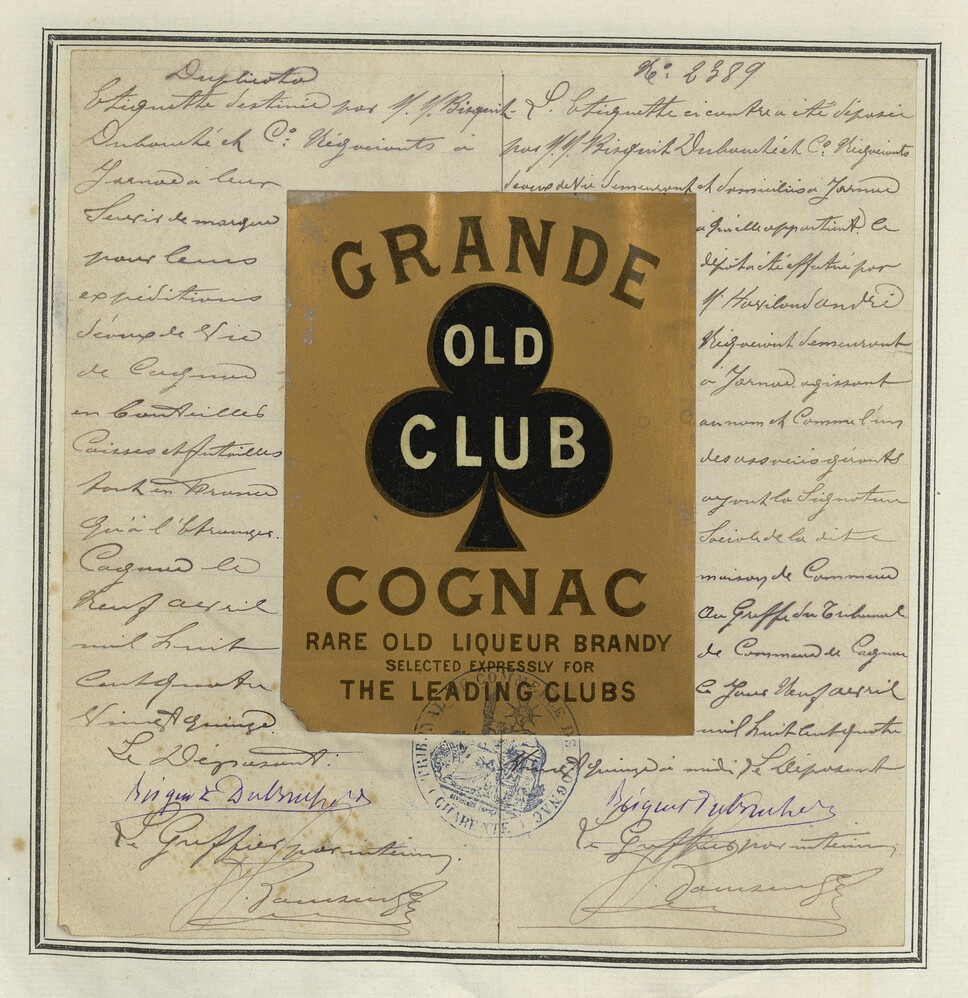 Duplicata
Etiquette destinée par M.M. Bisquit-
Dubouché et Co. Négociants à
Jarnac à leur
Servir de marque
pour leurs
expéditions
d'eaux de Vie
de Cognac
en bouteilles
Caisses et futailles
tant en France
qu'à l'Etranger.
Cognac le
Neuf avril
mil huit
cent quatre
Vingt quinze.
Le Déposant:
Bisquit Dubouché
Le Greffier par intérim,
No. 2389
L'Etiquette ci contre a été déposée
par M.M. Bisquit Dubouché et Co. Négociants
d'eaux de Vie demeurant et domiciliés à Jarnac
à qui elle appartient. Le
dépôt a été effectué par
M. Haviland André
Négociant demeurant
à Jarnac, agissant
au nom et Comme l'un
des associés gérants
ayant la Signature
Sociale de la dite
maison de Commerce
Au Greffe du Tribunal
de Commerce de Cognac
Le Jour Neuf avril
mil huit cent quatre
Vingt quinze à midi. Le Déposant
Bisquit Dubouché
Le Greffier par intérim,
GRANDE
OLD
CLUB
COGNAC
RARE OLD LIQUEUR BRANDY
SELECTED EXPRESSLY FOR
THE LEADING CLUBS
TRIBUNAL DE COMMERCE DE COGNAC
(CHARENTE)